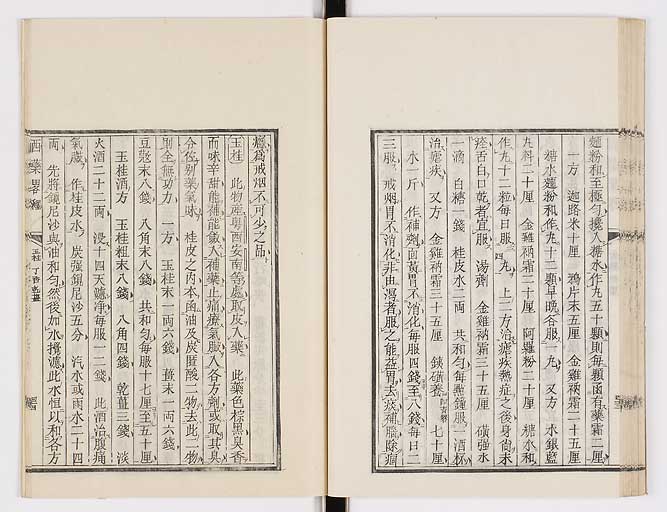 麵粉和至極勻攙入糖水作九五十顆則每顆函有藥霜二厘
一方 迦路米十厘 鴉片末五厘 金雞納霜二十五厘
糖水麵粉和作九十二顆早晚各服一九 又方 水銀藍
九料二十厘 金雞納霜二十厘 阿魏粉二十厘 糖水和
作九二十粒每日服三四九 上二方治瘧疾熱症之後身尙未
痊舌白口乾者宜服 湯劑 金雞納霜三十五厘 磺强水
一滴 白糖一錢 桂皮水二兩 共和勻每熱鐘服一酒杯
治瘧疾 又方 金雞納霜三十五厘 鐵磺養 七十厘
水一斤 作補劑函黃胃不消化每服四錢至八錢每日二
三服 戒烟胃不消化非由瀉者服之能益胃去痰補膽除瘤
癮爲戒烟不可少之品
玉桂 此物產粵西安南等處取皮入藥 此藥色棕黑臭香
而味辛甜能補能斂入補藥止痛療氣臌入各方劑或取其臭
分佐別藥氣味 桂皮之內本函油及炭匿酸二物去此二物
則全無功力 一方 玉桂末一兩六錢 薑末一兩六錢
豆蔻末八錢 八角末八錢 共和勻每服十七厘至五十厘
玉桂酒方 玉桂粗末八錢 八角四錢 乾薑三錢 淡
火酒二十二兩 浸十四天濾淨每服一二錢 此酒治腹痛
氣臌 作桂皮水 炭强鏡尼沙五分 汽水或雨水二十四
兩 先將鏡尼沙與油和勻然後加水攪濾此水恒以和各方
西藥畧釋
玉桂 丁香 乾薑